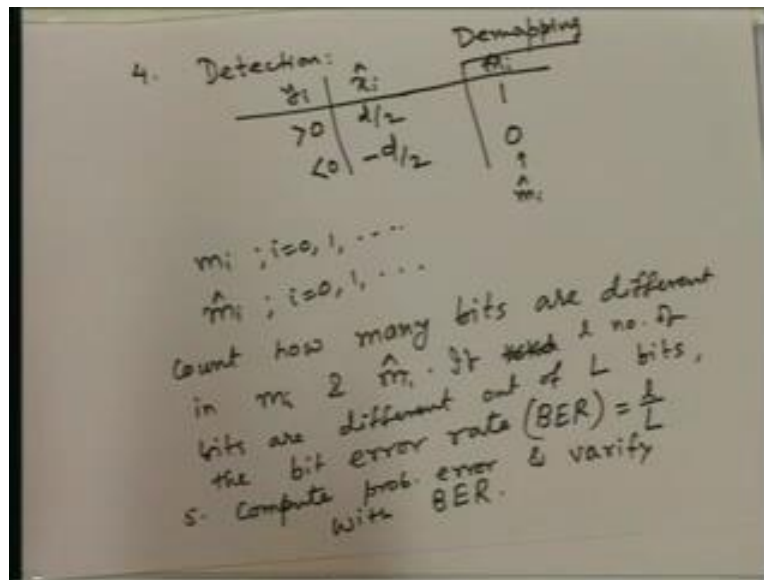 Demapping
4. Detection:
yi x̂i m̂i
>0 d/2 1
<0 -d/2 0
↑
m̂i
mi ; i=0, 1, ....
m̂i ; i=0, 1, ...
Count how many bits are different
in mi & m̂i. If l no. of
bits are different out of L bits,
the bit error rate (BER) = l/L
5. Compute prob. error & varify
with BER.